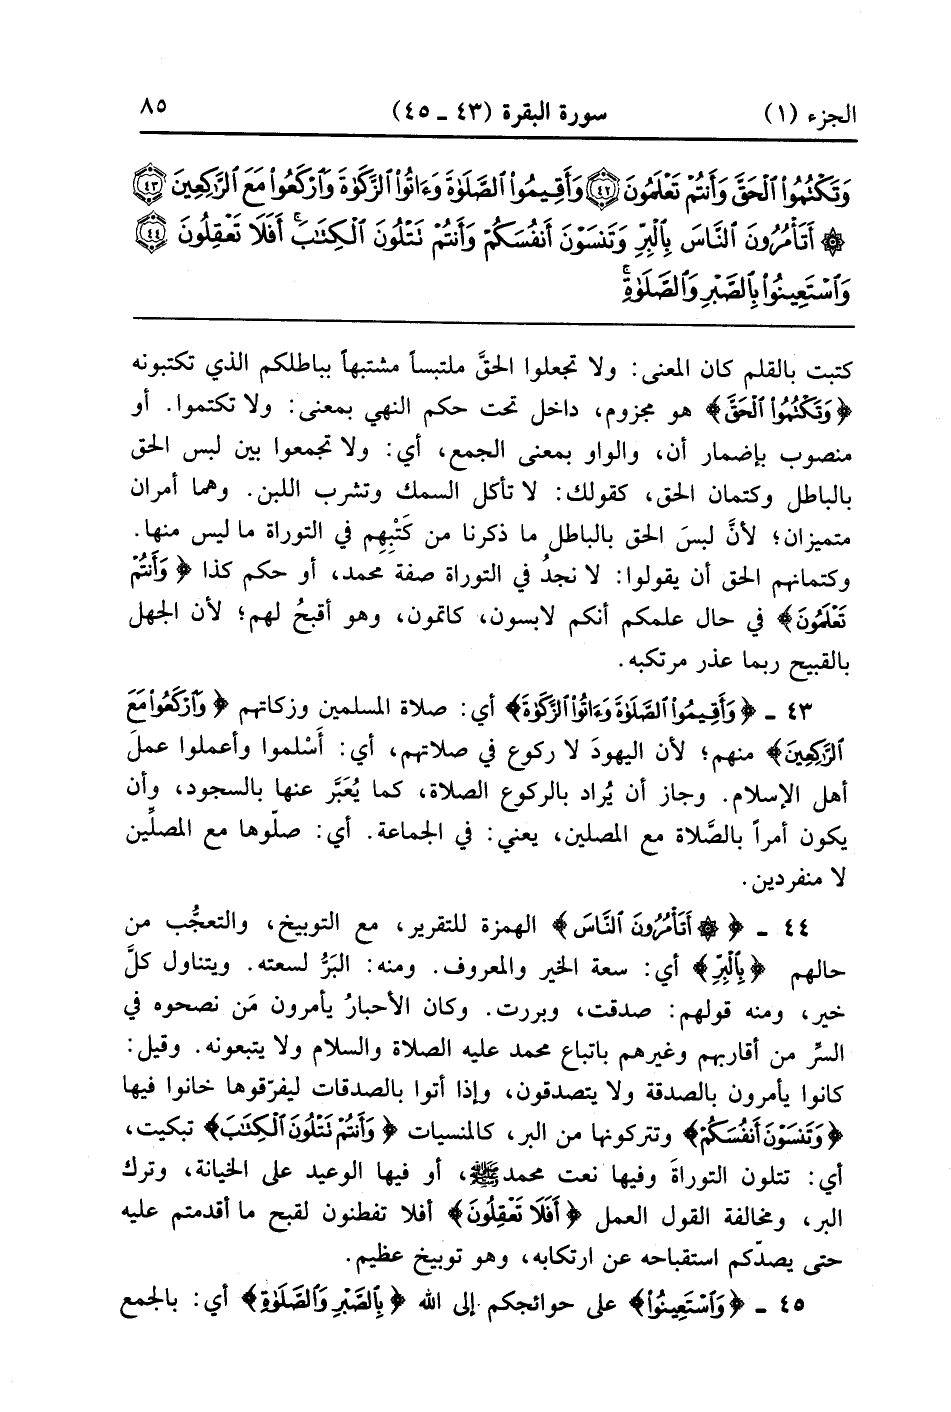 الجزء (١) سورة البقرة (٤٣ ـ ٤٥) ٨٥
وَتَكْتُمُوا۟ ٱلْحَقَّ وَأَنتُمْ تَعْلَمُونَ ﴿٤٢﴾ وَأَقِيمُوا۟ ٱلصَّلَوٰةَ وَءَاتُوا۟ ٱلزَّكَوٰةَ وَٱرْكَعُوا۟ مَعَ ٱلرَّٰكِعِينَ ﴿٤٣﴾
۞ أَتَأْمُرُونَ ٱلنَّاسَ بِٱلْبِرِّ وَتَنسَوْنَ أَنفُسَكُمْ وَأَنتُمْ تَتْلُونَ ٱلْكِتَٰبَ ۚ أَفَلَا تَعْقِلُونَ ﴿٤٤﴾
وَٱسْتَعِينُوا۟ بِٱلصَّبْرِ وَٱلصَّلَوٰةِ ۚ
كتبت بالقلم كان المعنى: ولا تجعلوا الحقَّ ملتبساً مشتبهاً بباطلكم الذي تكتبونه
﴿وَتَكْتُمُوا۟ ٱلْحَقَّ﴾ هو مجزوم، داخل تحت حكم النهي بمعنى: ولا تكتموا. أو
منصوب بإضمار أن، والواو بمعنى الجمع، أي: ولا تجمعوا بين لبس الحق
بالباطل وكتمان الحق، كقولك: لا تأكل السمك وتشرب اللبن. وهما أمران
متميزان؛ لأنَّ لبسَ الحق بالباطل ما ذكرنا من كَتْبِهِم في التوراة ما ليس منها.
وكتمانهم الحق أن يقولوا: لا نجدُ في التوراة صفة محمد، أو حكم كذا ﴿وَأَنتُمْ
تَعْلَمُونَ﴾ في حال علمكم أنكم لابسون، كاتمون، وهو أقبحُ لهم؛ لأن الجهل
بالقبيح ربما عذر مرتكبه.
٤٣ ـ ﴿وَأَقِيمُوا۟ ٱلصَّلَوٰةَ وَءَاتُوا۟ ٱلزَّكَوٰةَ﴾ أي: صلاة المسلمين وزكاتهم ﴿وَٱرْكَعُوا۟ مَعَ
ٱلرَّٰكِعِينَ﴾ منهم؛ لأن اليهودَ لا ركوع في صلاتهم، أي: أَسْلموا وأعملوا عملَ
أهل الإسلام. وجاز أن يُراد بالركوع الصلاة، كما يُعَبَّر عنها بالسجود، وأن
يكون أمراً بالصَّلاة مع المصلين، يعني: في الجماعة. أي: صلّوها مع المصلِّين
لا منفردين.
٤٤ ـ ﴿۞ أَتَأْمُرُونَ ٱلنَّاسَ﴾ الهمزة للتقرير، مع التوبيخ، والتعجُّب من
حالهم ﴿بِٱلْبِرِّ﴾ أي: سعة الخير والمعروف. ومنه: البَرُّ لسعته. ويتناول كلَّ
خير، ومنه قولهم: صدقت، وبررت. وكان الأحبارُ يأمرون مَن نصحوه في
السرِّ من أقاربهم وغيرهم باتباع محمد عليه الصلاة والسلام ولا يتبعونه. وقيل:
كانوا يأمرون بالصدقة ولا يتصدقون، وإذا أتوا بالصدقات ليفرّقوها خانوا فيها
﴿وَتَنسَوْنَ أَنفُسَكُمْ﴾ وتتركونها من البر، كالمنسيات ﴿وَأَنتُمْ تَتْلُونَ ٱلْكِتَٰبَ﴾ تبكيت،
أي: تتلون التوراةَ وفيها نعت محمدﷺ، أو فيها الوعيد على الخيانة، وترك
البر، ومخالفة القول العمل ﴿أَفَلَا تَعْقِلُونَ﴾ أفلا تفطنون لقبح ما أقدمتم عليه
حتى يصدّكم استقباحه عن ارتكابه، وهو توبيخ عظيم.
٤٥ ـ ﴿وَٱسْتَعِينُوا۟﴾ على حوائجكم إلى الله ﴿بِٱلصَّبْرِ وَٱلصَّلَوٰةِ﴾ أي: بالجمع